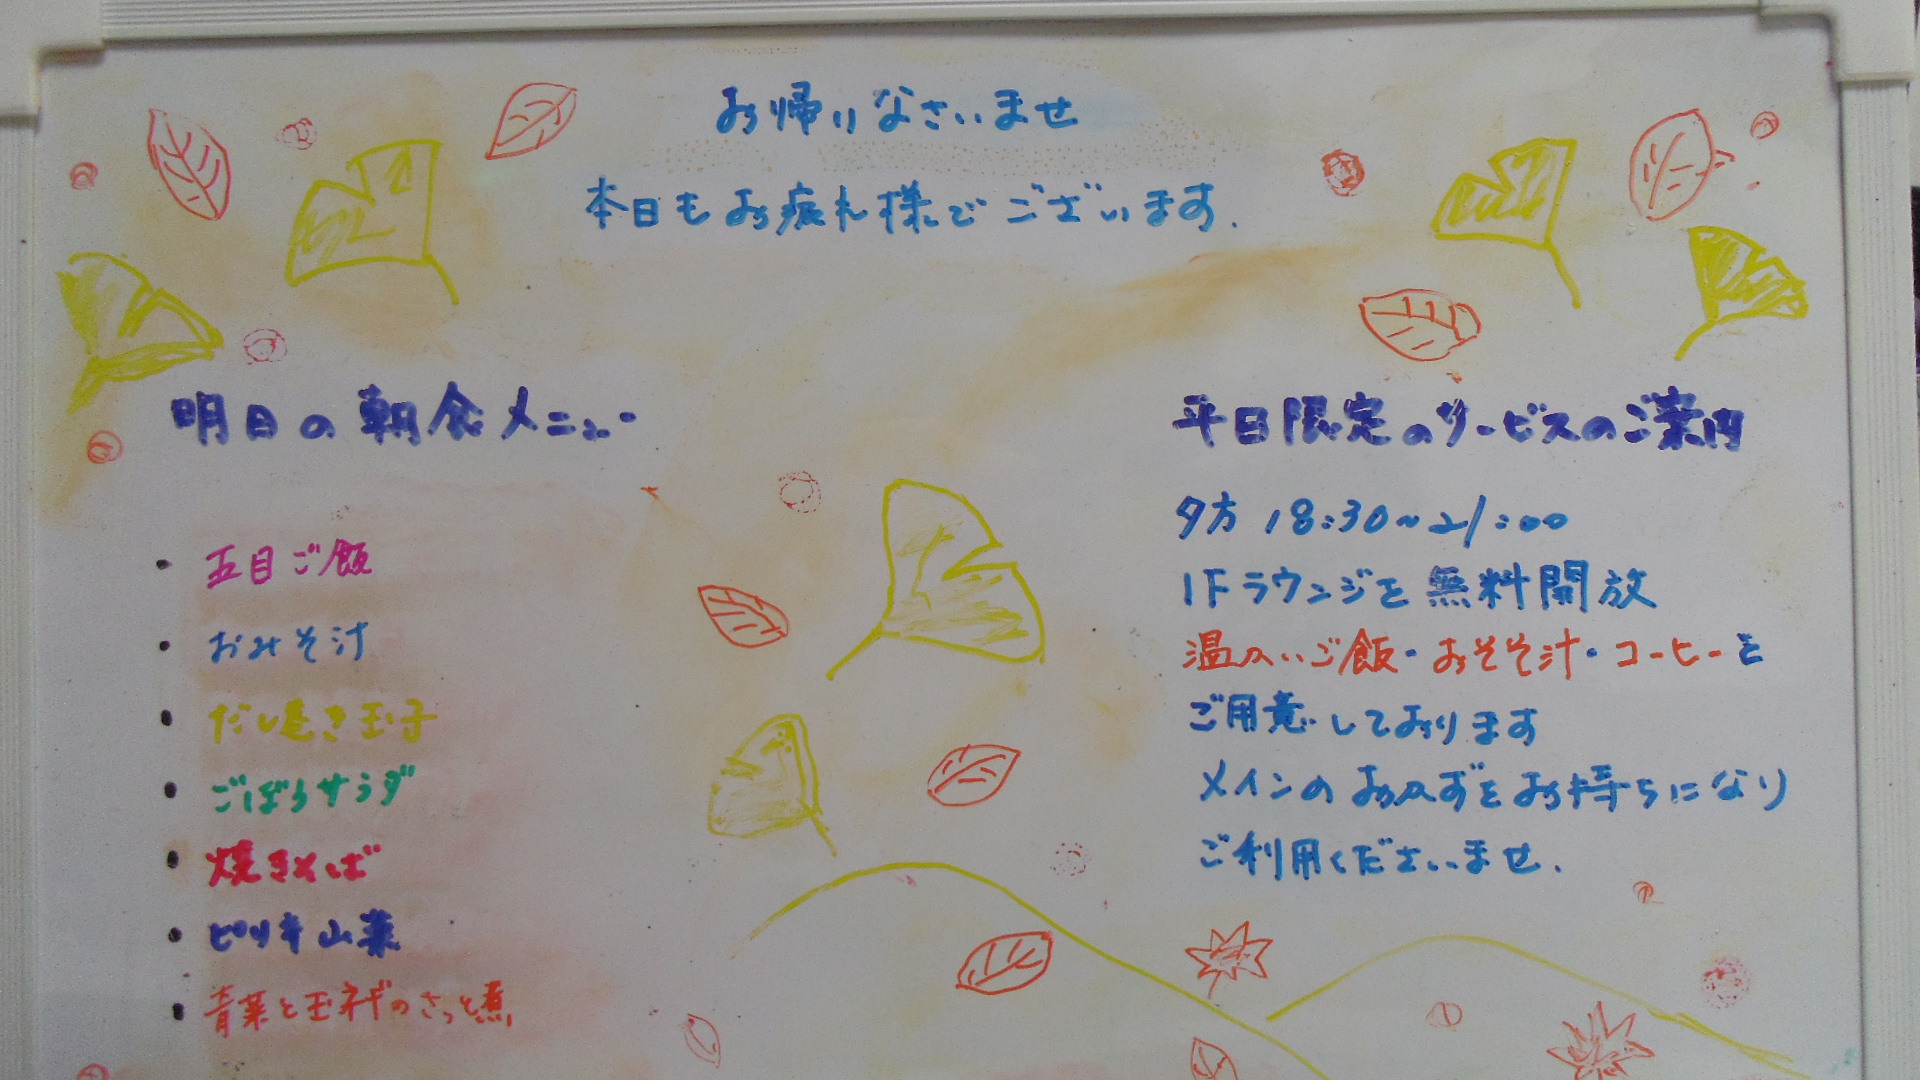 お帰りなさいませ
本日もお疲れ様でございます.
明日の朝食メニュー
・五目ご飯
・おみそ汁
・だし巻き玉子
・ごぼうサラダ
・焼きそば
・ピリ辛山菜
・青菜と玉ネギのさっと煮
平日限定のサービスのご案内
夕方 18:30~21:00
1Fラウンジを無料開放
温かいご飯・おそそ汁・コーヒーを
ご用意しております
メインのおかずをお持ちになり
ご利用くださいませ.